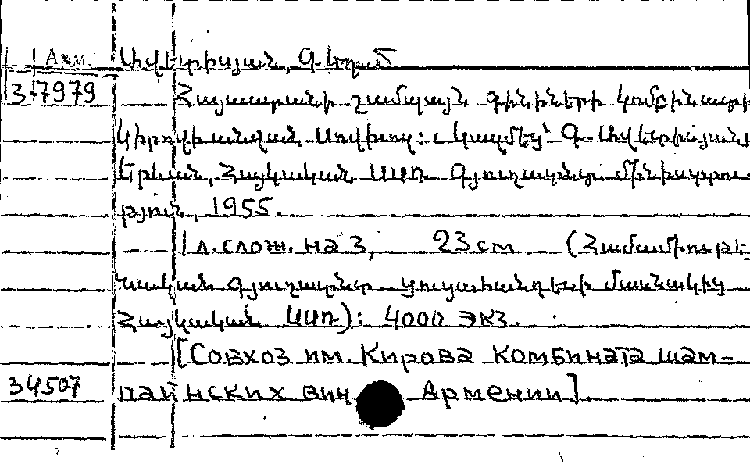 Арм. Ավետիսյան, Գ.
3-7979 Հայաստանի շամպայն գինիների կոմբինատի
Կիրովի անվան սովխոզ: Կազմեց՝ Գ. Ավետիսյան
Երևան, Հայկական ՍՍՌ Գյուղատնտ. մինիստրու-
թյուն, 1955.
1 л. слож. на 3, 23 см (Համամիութե-
նական գյուղատնտ. ցուցահանդեսի մասնակից
Հայկական ՍՍՌ): 4000 экз.
[Совхоз им. Кирова комбината шам-
34507 панских вин Армении].